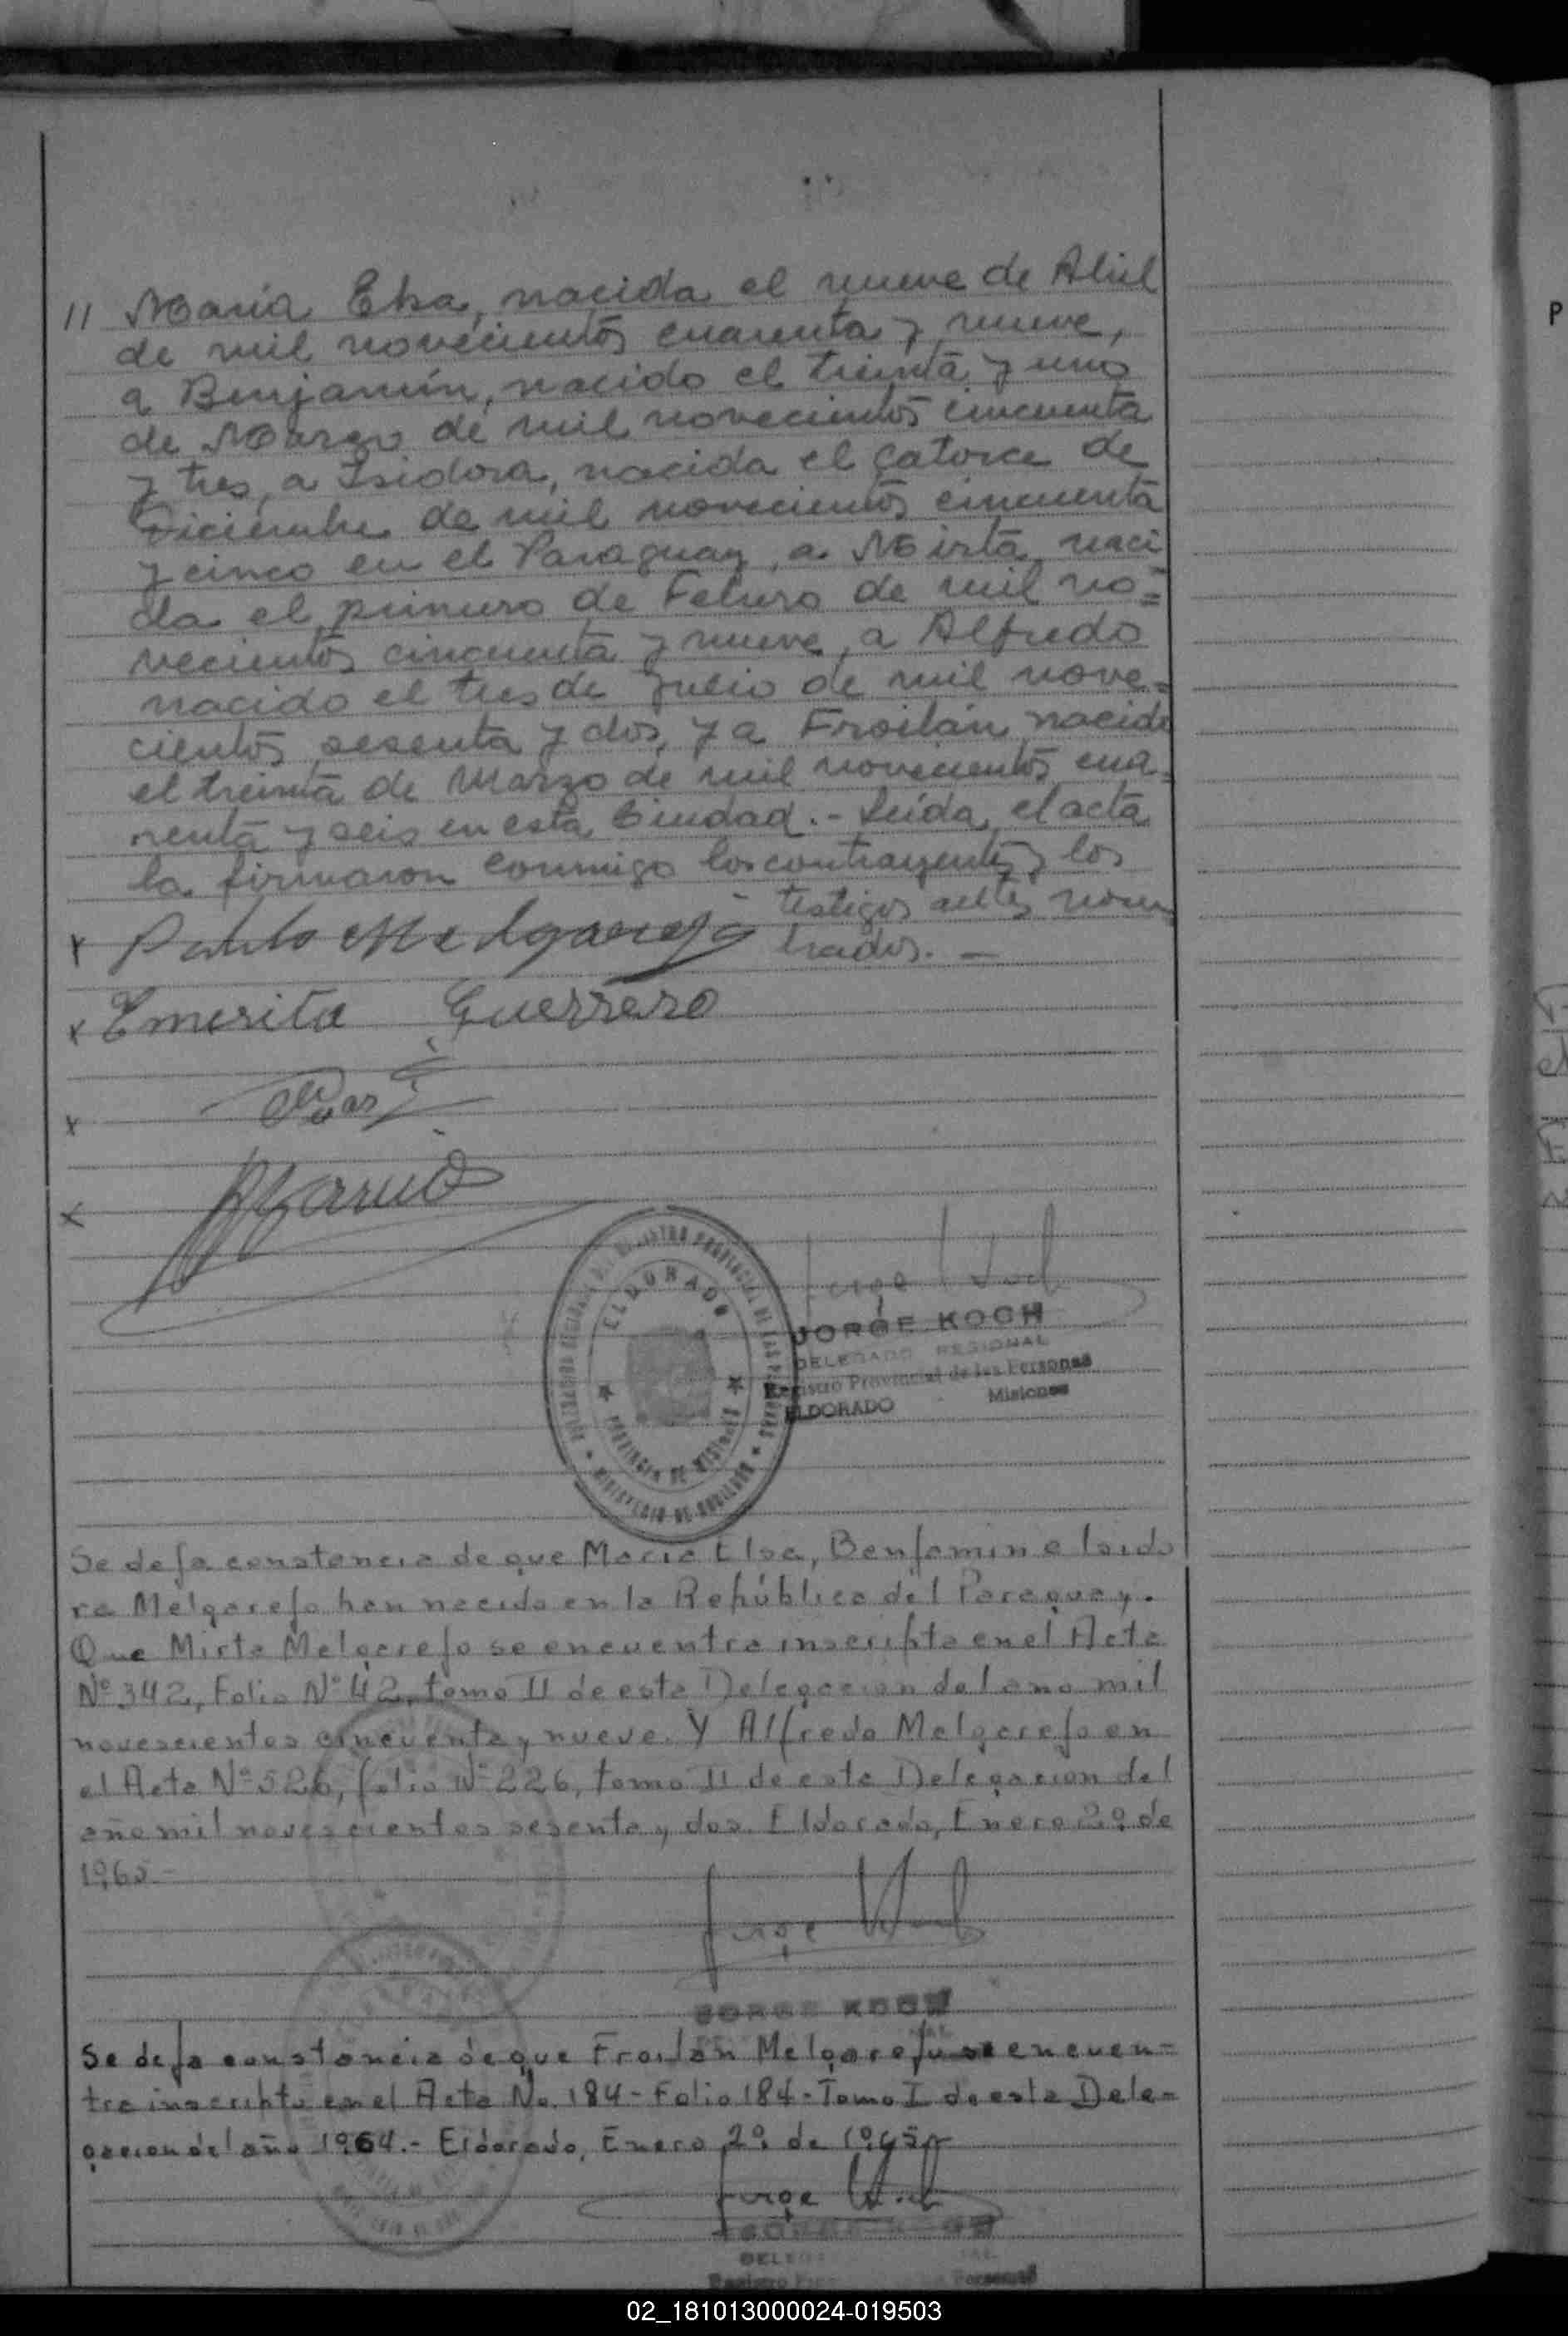 // María Elsa, nacida el nueve de Abril
de mil novecientos cuarenta y nueve,
a Benjamín, nacido el treinta y uno
de Marzo de mil novecientos cincuenta
y tres, a Isidora, nacida el catorce de
Diciembre de mil novecientos cincuenta
y cinco en el Paraguay, a Mirta naci
da el primero de Febrero de mil no=
vecientos cincuenta y nueve, a Alfredo
nacido el tres de Julio de mil nove=
cientos sesenta y dos, y a Froilán nacido
el treinta de Marzo de mil novecientos cua=
renta y seis en esta Ciudad.- Leída el acta
la firmaron conmigo los contrayentes y los
testigos antes nom
brados. —
x Pablo Melgarejo
x Emerita Guerrero
x
x
ELDORADO
PROVINCIA DE MISIONES
MINISTERIO DE GOBIERNO
Jorge Koch
JORGE KOCH
DELEGADO REGIONAL
Registro Provincial de las Personas
ELDORADO - Misiones
Se deja constancia de que María Elsa, Benjamin e Isido
ra Melgarejo han nacido en la República del Paraguay.
Que Mirta Melgarejo se encuentra inscripta en el Acta
Nº 342, Folio Nº 42, tomo II de esta Delegacion del ano mil
novescientos cincuenta y nueve. Y Alfredo Melgarejo en
el Acta Nº 526, folio Nº 226, tomo II de esta Delegacion del
año mil novescientos sesenta y dos. Eldorado, Enero 2º de
1965-
Jorge Koch
JORGE KOCH
Se deja constancia de que Froilán Melgarejo se encuen=
tra inscripto en el Acta No. 184 - Folio 184 - Tomo I de esta Dele=
gacion del año 1964.- Eldorado, Enero 2º de 1965
Jorge Koch
02_181013000024-019503